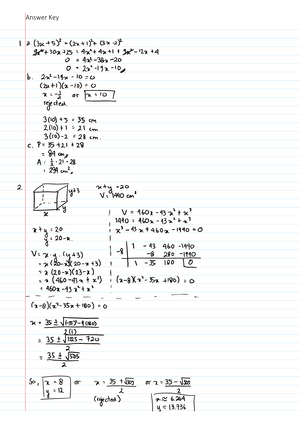 Answer Key
1 a (3x+5)² = (2x+1)² + (3x-2)²
9x² + 30x + 25 = 4x² + 4x + 1 + 9x² - 12x + 4
0 = 4x² - 38x - 20
0 = 2x² - 19x - 10
b. 2x² - 19x - 10 = 0
(2x+1)(x-10) = 0
x = -1/2 or x = 10
rejected
3(10) + 5 = 35 cm
2(10) + 1 = 21 cm
3(10) - 2 = 28 cm.
c. P = 35 + 21 + 28
= 84 cm
A = 1/2 · 21 · 28
= 294 cm²
2.
y+3
y
x
x + y = 20
V = 1440 cm³
x + y = 20
y = 20 - x.
V = x · y · (y+3)
= x (20-x)(20-x+3)
= x (20-x)(23-x)
= x (460 - 43x + x²)
= 460x - 43x² + x³
V = 460x - 43x² + x³
1440 = 460x - 43x² + x³
x³ - 43x² + 460x - 1440 = 0
1 -43 460 -1440
-8 280 -1440
1 -35 180 0
(x-8)(x² - 35x + 180) = 0
(x-8)(x² - 35x + 180) = 0
2(1)
2
= 35 ± √505
2
So, x = 8 or x = 35 + √505 or x = 35 - √505
y = 12 2 2
(rejected) x ≈ 6.264
y = 13.736